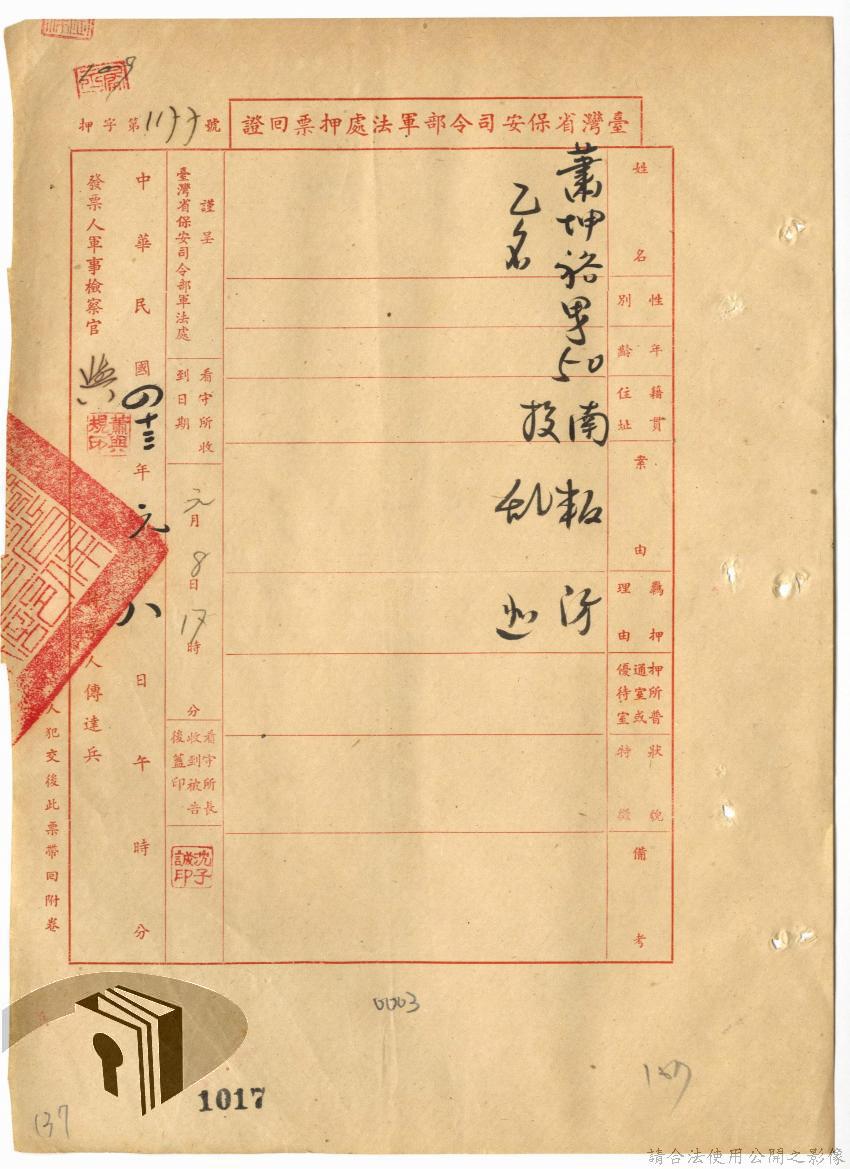 臺灣省保安司令部軍法處押票回證
押字第1177號
姓名
蕭坤裕
乙名
性別
男
年齡
50
籍貫住址
南投
案由
叛乱
羈押理由
押所普通室或優待室
狀貌特徵
備考
謹呈
臺灣省保安司令部軍法處
看守所收到日期
元月8日17時 分
看守所長收到被告後蓋印
沈子誠印
中華民國四十三年元月八日午時分
發票人軍事檢察官
蕭與規印
人傳達兵
人犯交後此票帶回附卷
0003
137
1017
請合法使用公開之影像